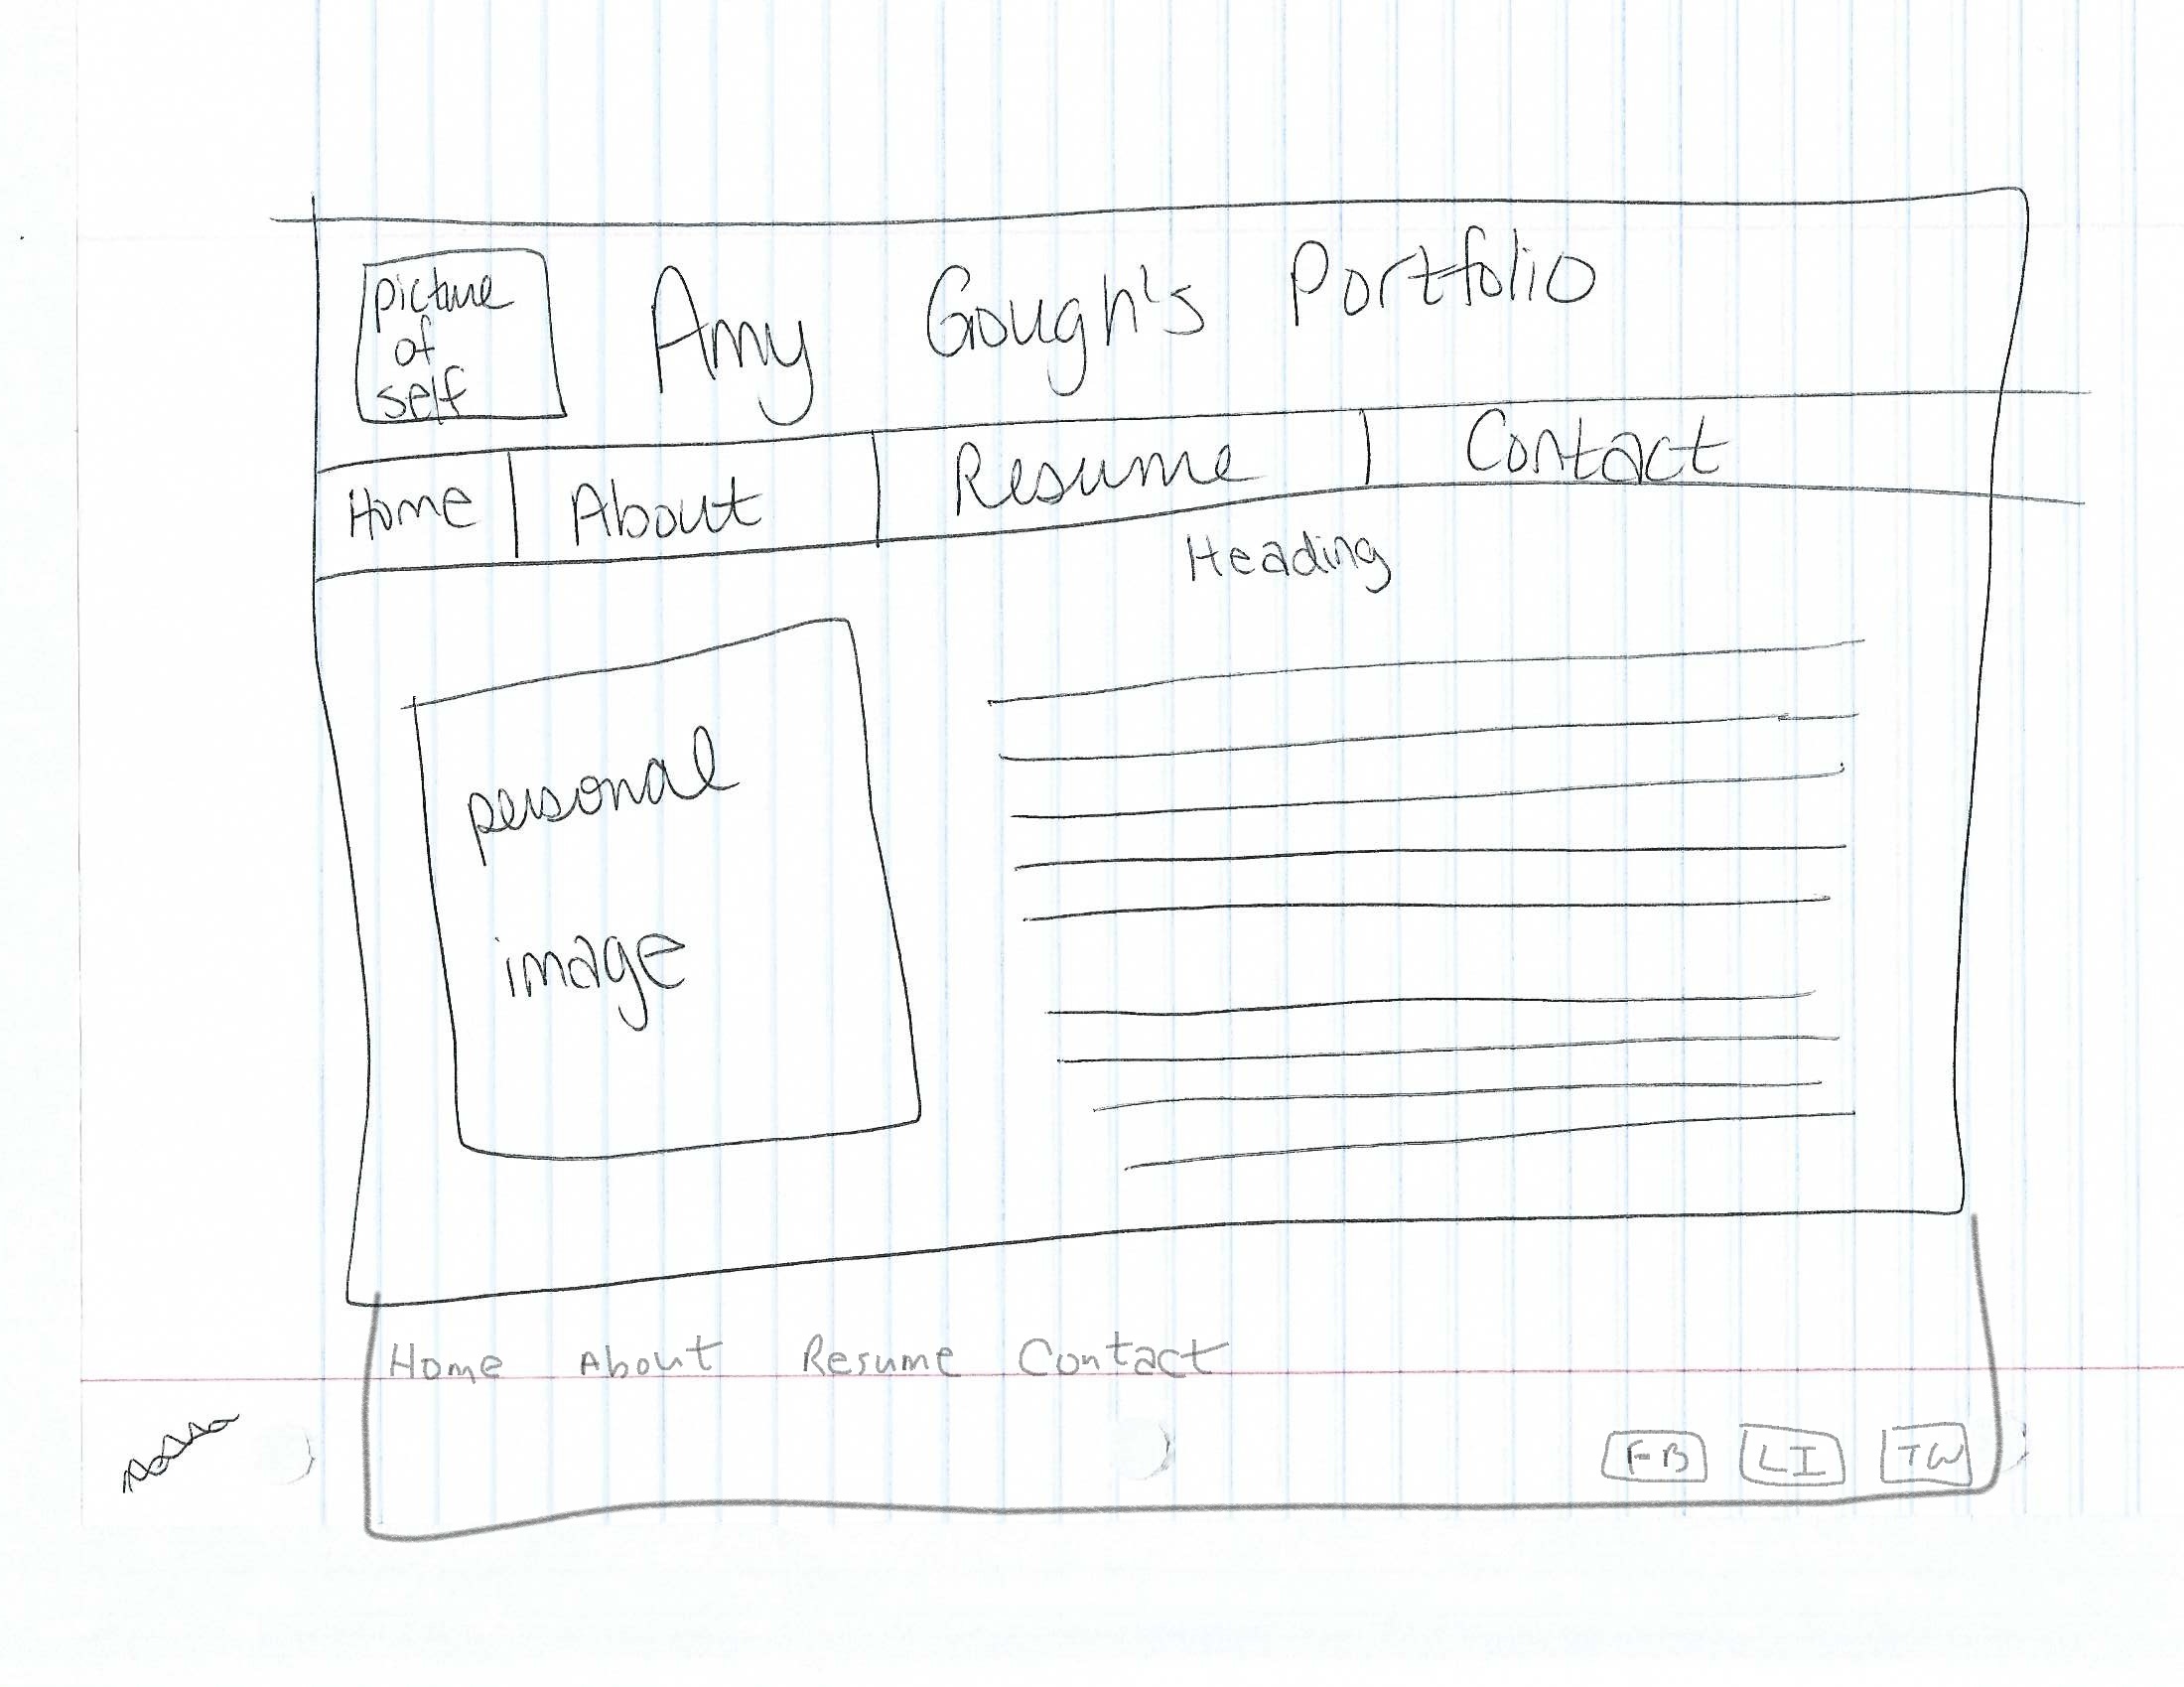 picture
of
self
Amy Gough's Portfolio
Home About Resume Contact
Heading
personal
image
Home About Resume Contact
FB LI TW